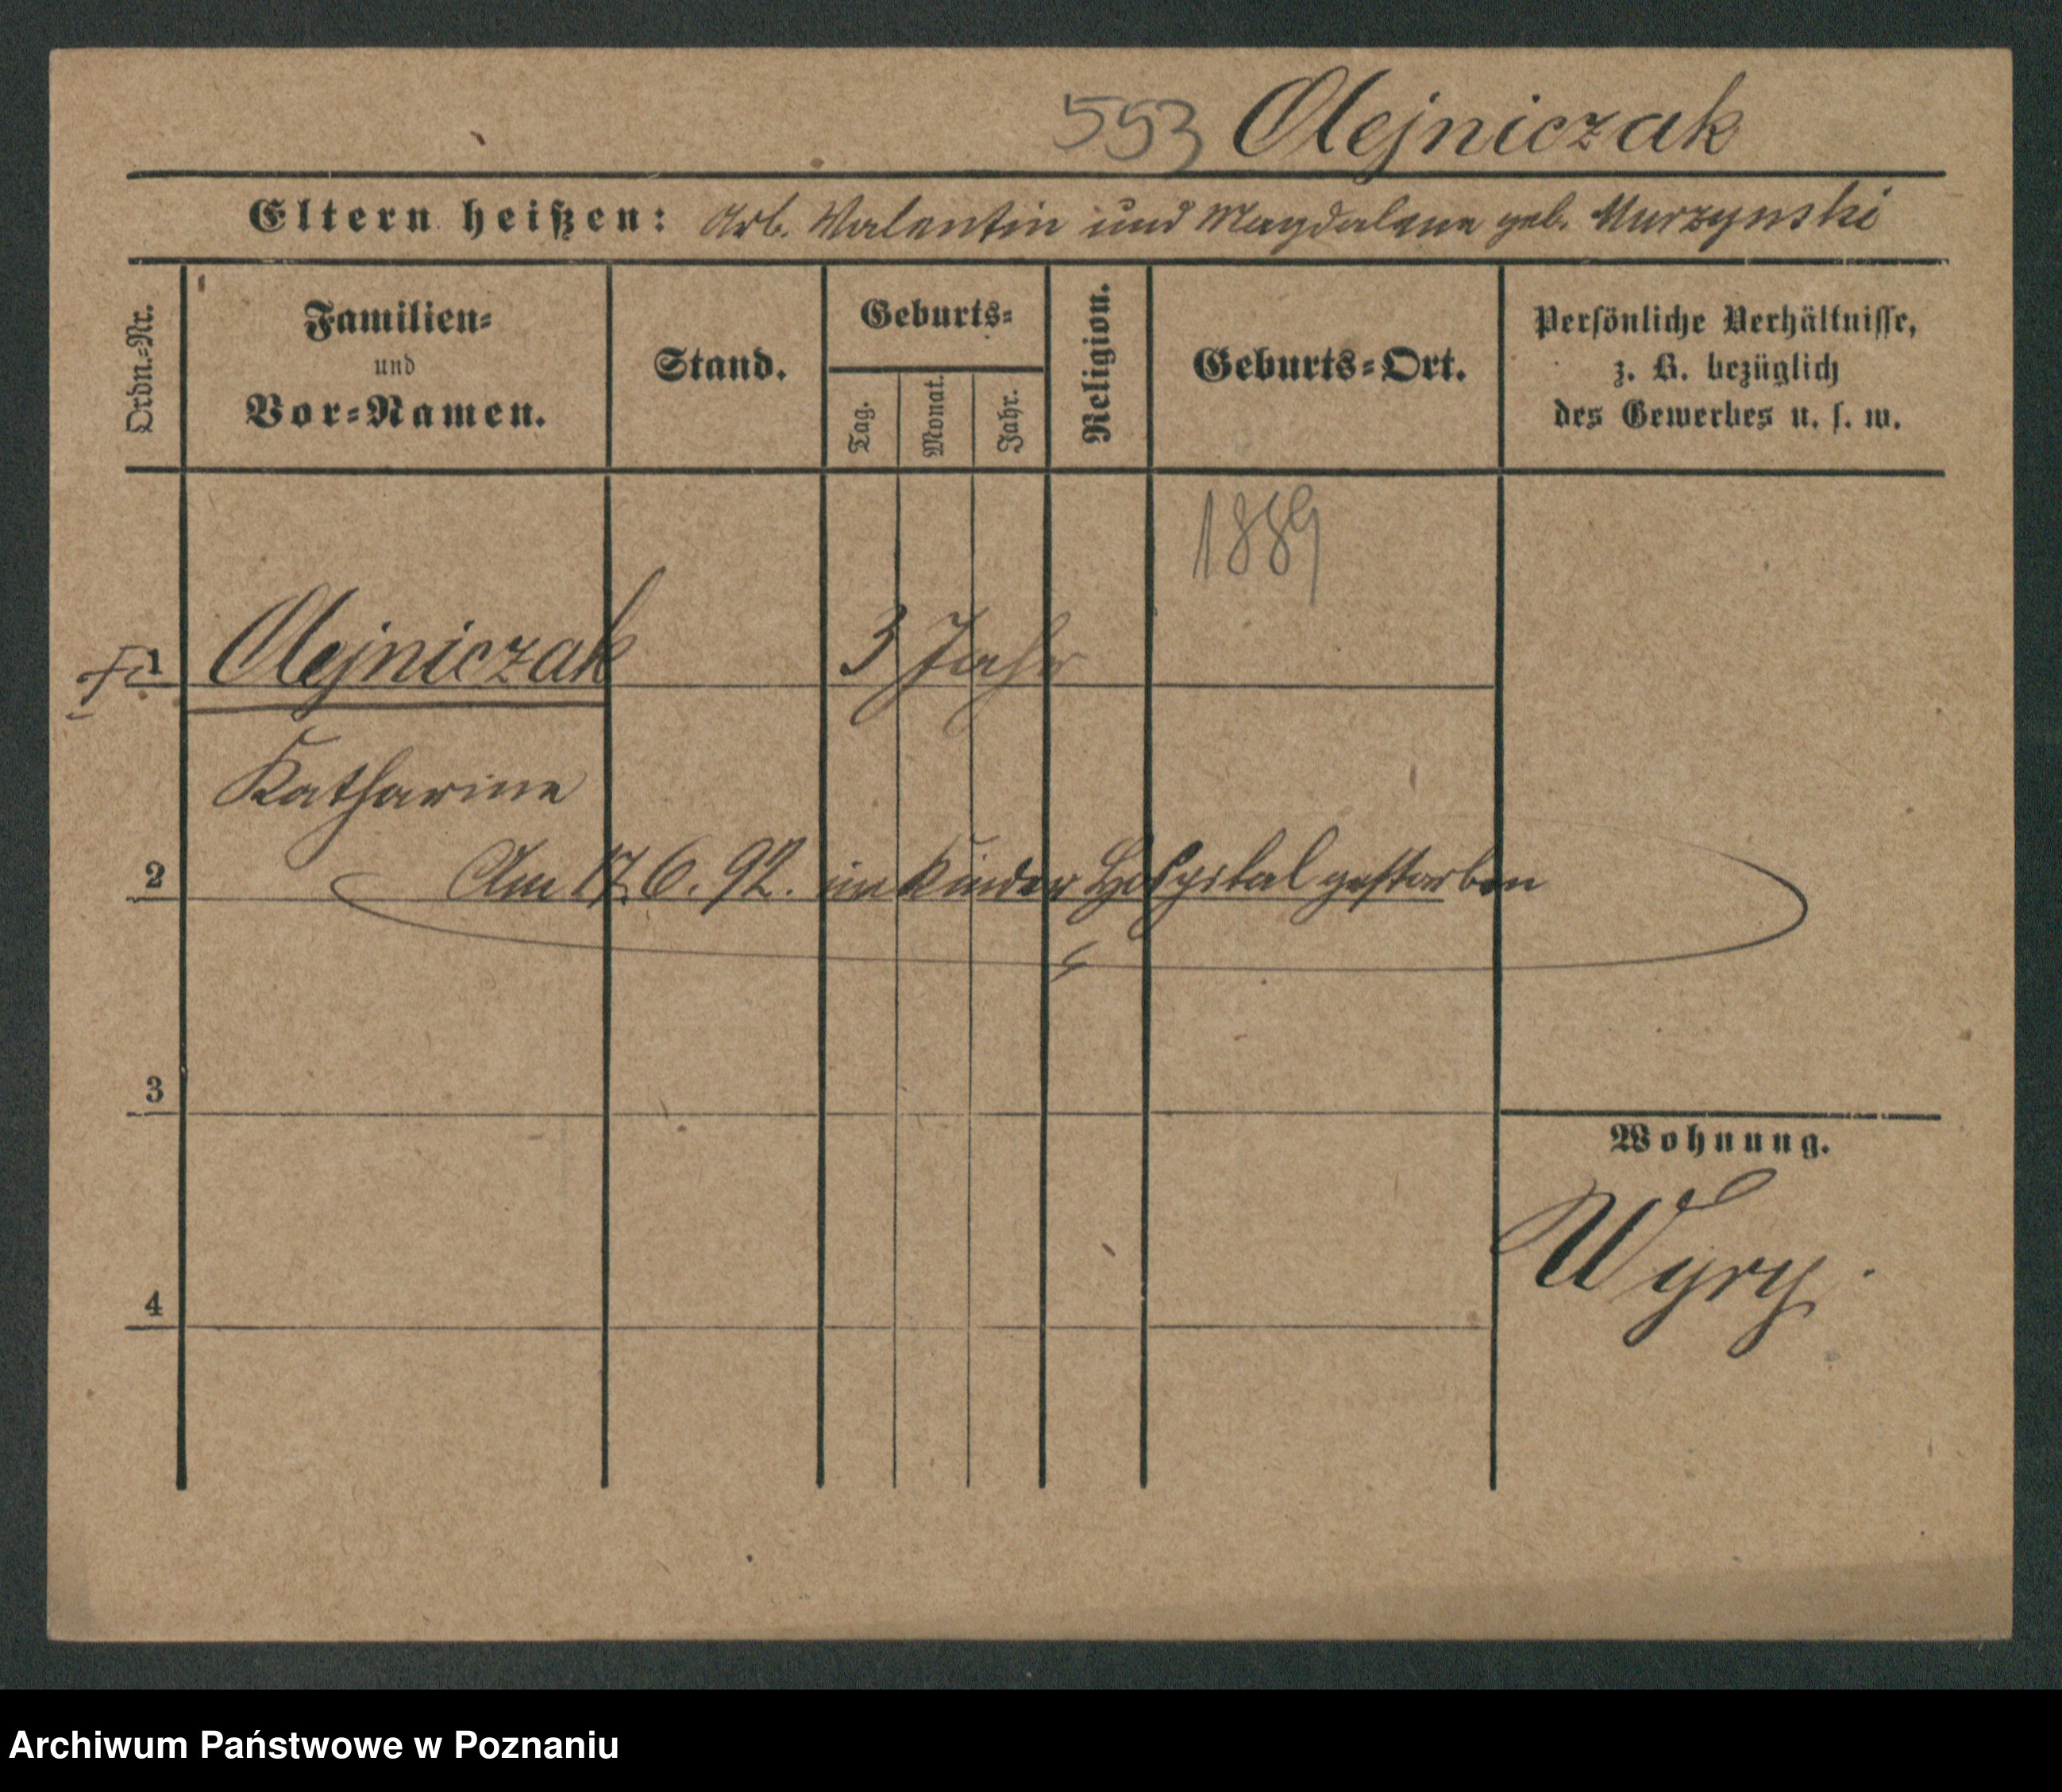 553 Olejniczak
Eltern heißen: Arb. Valentin und Magdalena geb. Murzynski
Ordn.-Nr.
Familien-
und
Vor-Namen.
Stand.
Geburts-
Tag.
Monat.
Jahr.
Religion.
Geburts-Ort.
Persönliche Verhältnisse,
z. B. bezüglich
des Gewerbes u. s. w.
1889
1 Olejniczak 3 Jahr
Katharina
2 Am 17.6.92. im Kinder Hospital gestorben
3
Wohnung.
Wyry.
4
Archiwum Państwowe w Poznaniu